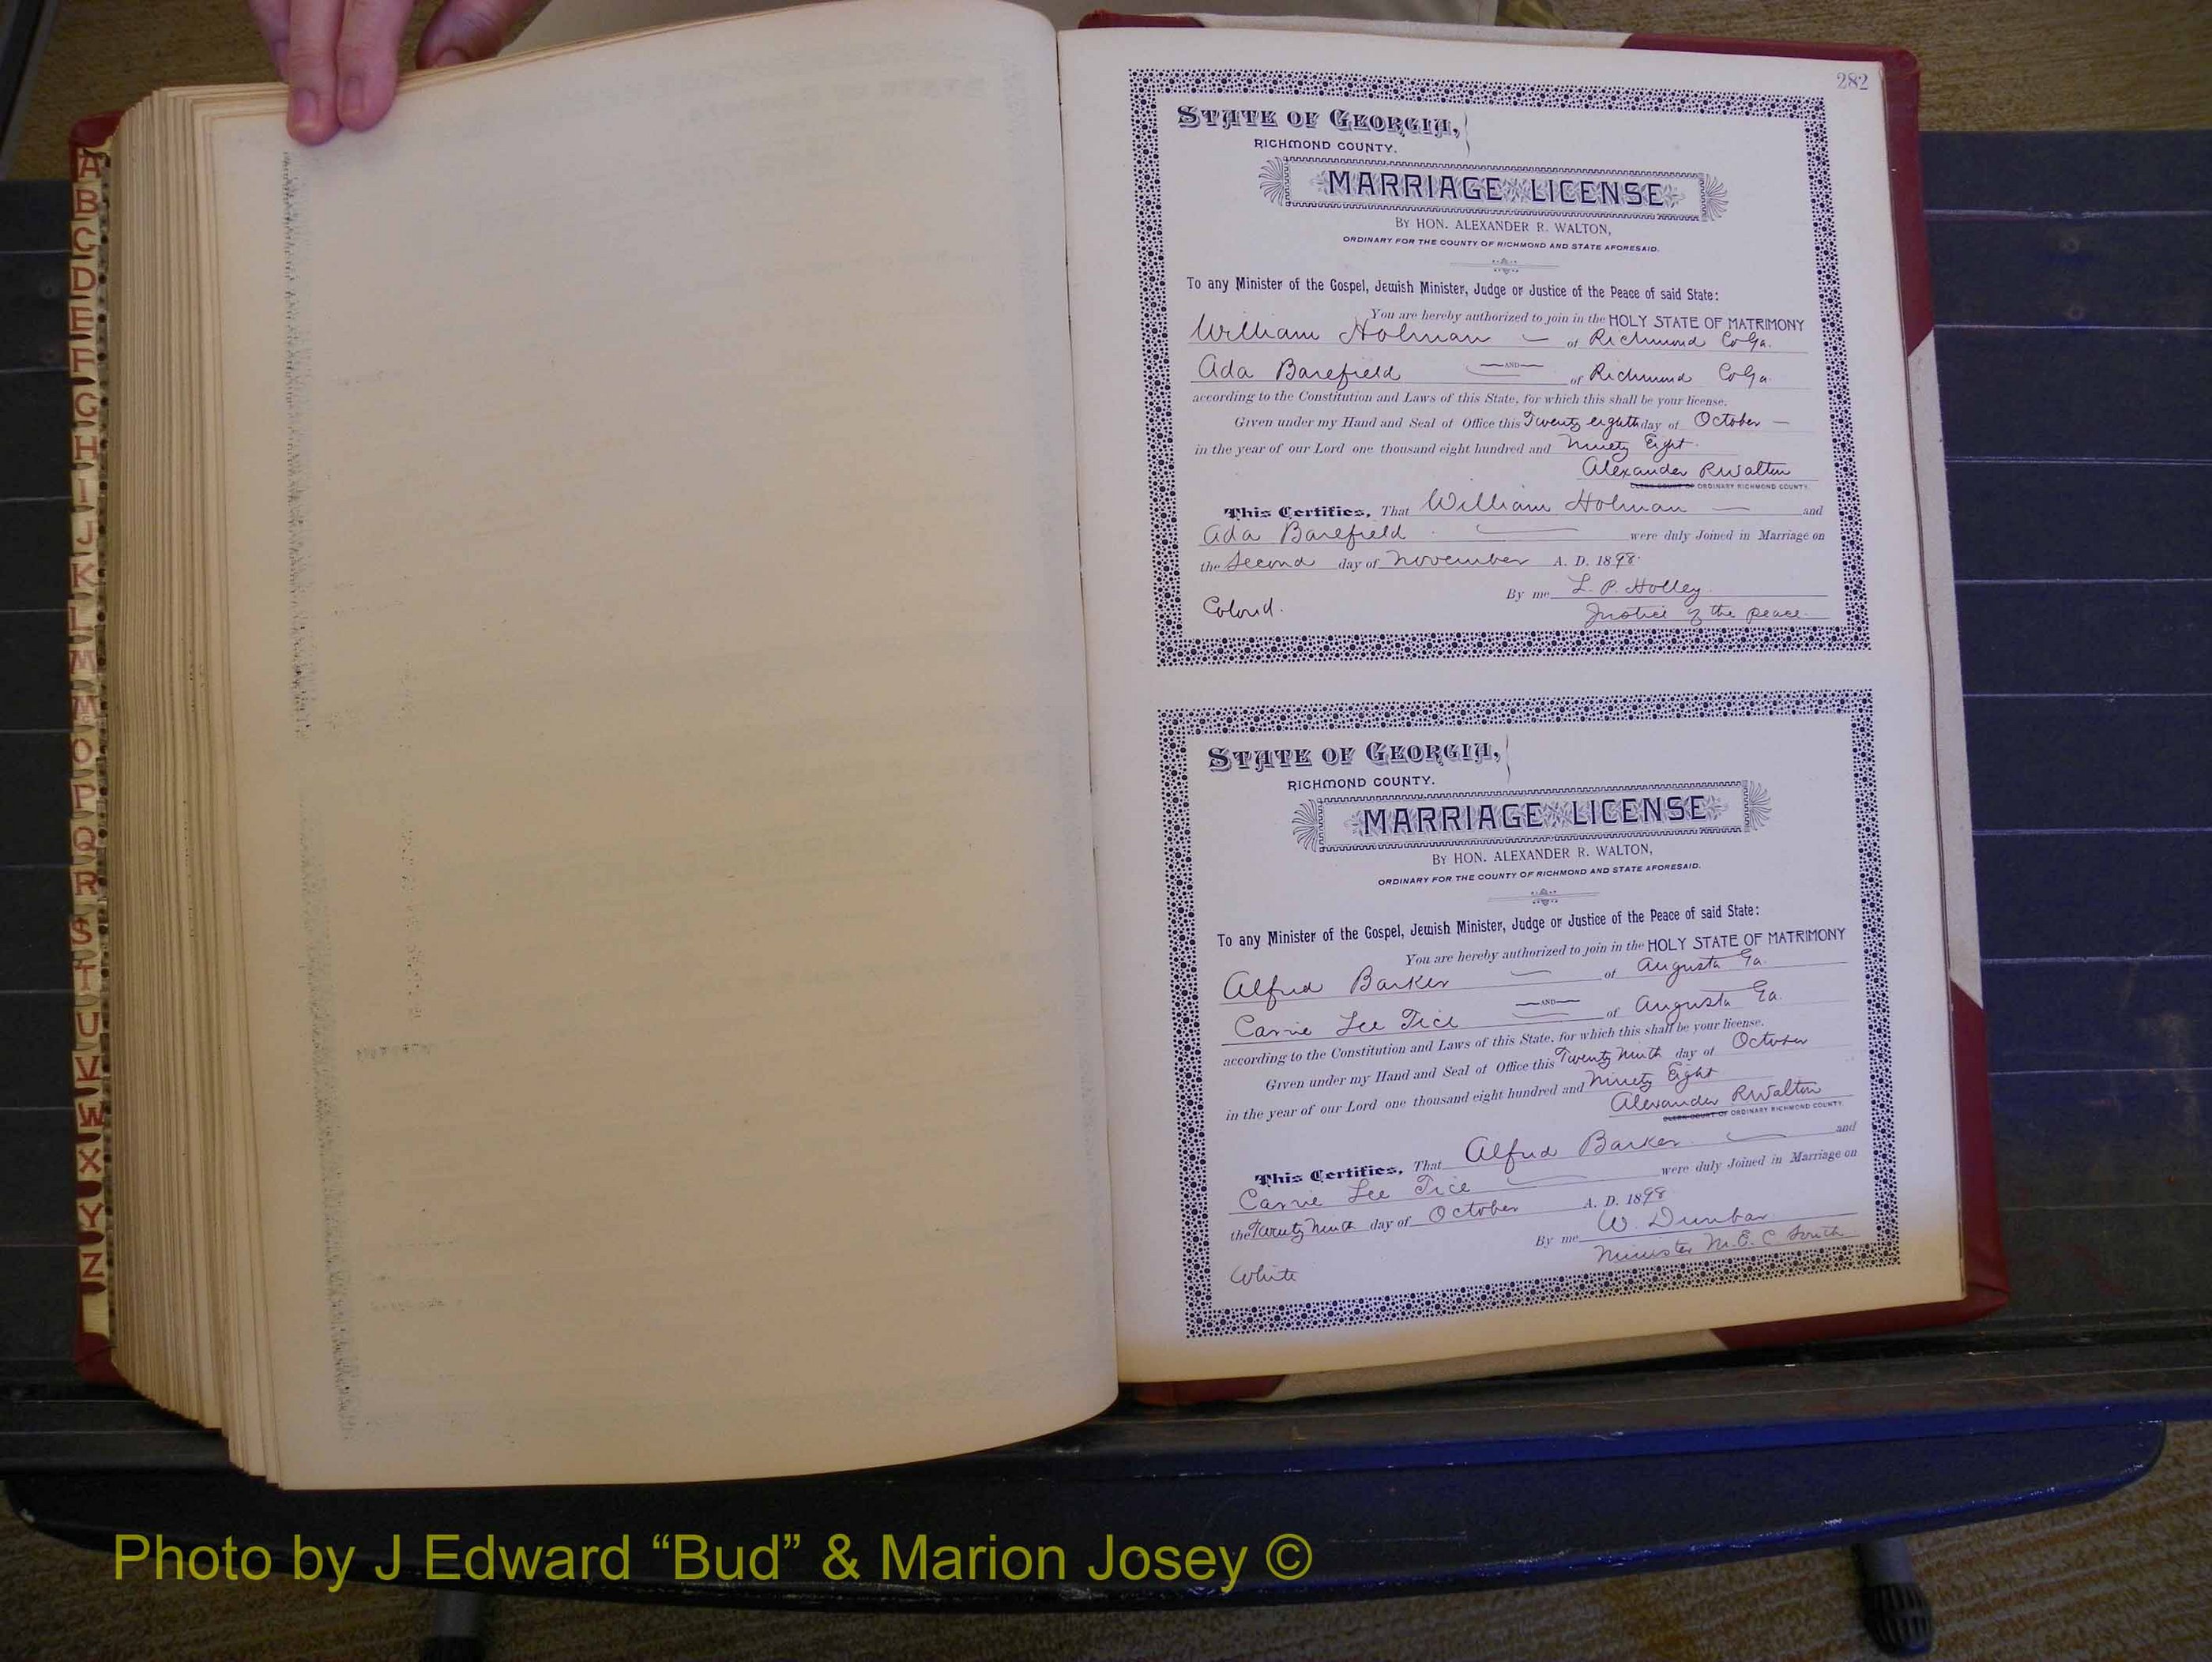 A
B
C
D
E
F
G
H
I
J
K
L
M
Mc
O
P
Q
R
S
T
U
V
W
X
Y
Z
282
STATE OF GEORGIA,
RICHMOND COUNTY.
MARRIAGE LICENSE
BY HON. ALEXANDER R. WALTON,
ORDINARY FOR THE COUNTY OF RICHMOND AND STATE AFORESAID.
To any Minister of the Gospel, Jewish Minister, Judge or Justice of the Peace of said State:
You are hereby authorized to join in the HOLY STATE OF MATRIMONY
William Holman of Richmond Co Ga.
AND
Ada Barefield of Richmond Co Ga.
according to the Constitution and Laws of this State, for which this shall be your license.
Given under my Hand and Seal of Office this Twenty eighth day of October
in the year of our Lord one thousand eight hundred and Ninety Eight.
Alexander R Walton
CLERK COURT OF ORDINARY RICHMOND COUNTY.
This Certifies, That William Holman and
Ada Barefield were duly Joined in Marriage on
the Second day of November A. D. 1898.
By me L. P. Holley
Colord. Justice of the peace.
STATE OF GEORGIA,
RICHMOND COUNTY.
MARRIAGE LICENSE
BY HON. ALEXANDER R. WALTON,
ORDINARY FOR THE COUNTY OF RICHMOND AND STATE AFORESAID.
To any Minister of the Gospel, Jewish Minister, Judge or Justice of the Peace of said State:
You are hereby authorized to join in the HOLY STATE OF MATRIMONY
Alfred Barker of Augusta Ga.
AND
Carrie Lee Tice of Augusta Ga.
according to the Constitution and Laws of this State, for which this shall be your license.
Given under my Hand and Seal of Office this Twenty Ninth day of October
in the year of our Lord one thousand eight hundred and Ninety Eight
Alexander R Walton
CLERK COURT OF ORDINARY RICHMOND COUNTY.
This Certifies, That Alfred Barker and
Carrie Lee Tice were duly Joined in Marriage on
the Twenty Ninth day of October A. D. 1898
By me W. Dunbar
Minister M. E. C South
White
Photo by J Edward “Bud” & Marion Josey ©